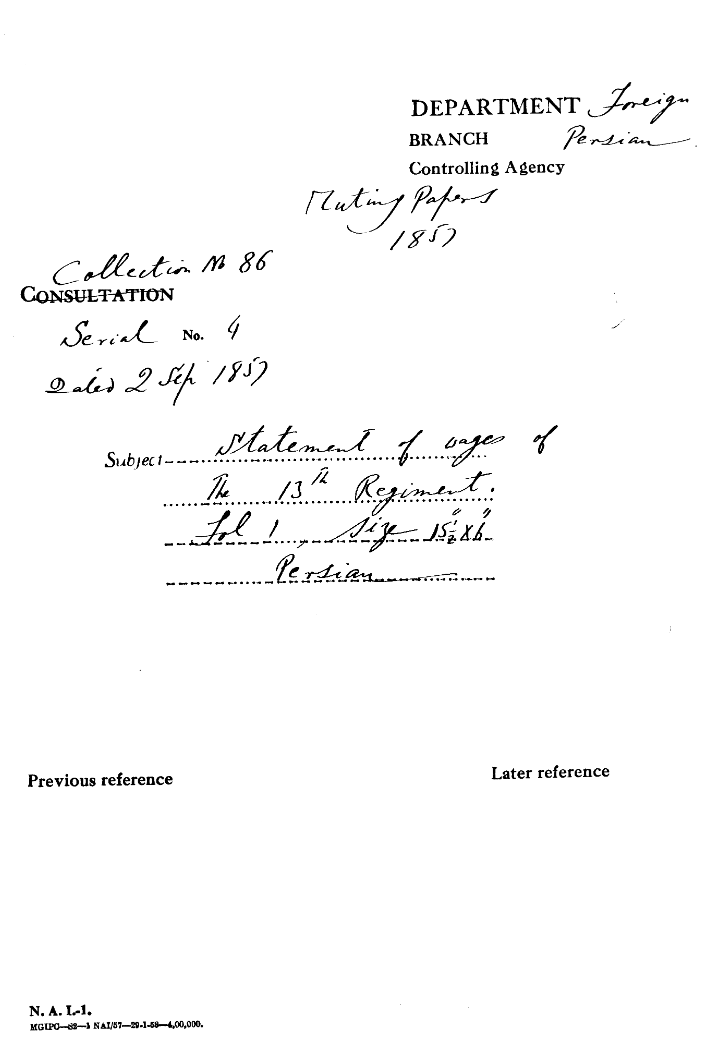 DEPARTMENT Foreign
BRANCH Persian
Controlling Agency
Mutiny Papers
1857
Collection No 86
CONSULTATION
Serial No. 4
Dated 2 Sep 1857
Subject Statement of wages of
The 13th Regiment.
Fol 1, size 15½" x 6"
Persian
Previous reference
Later reference
N. A. I.-1.
MGIPC—S2—1 NAI/57—29-1-58—4,00,000.